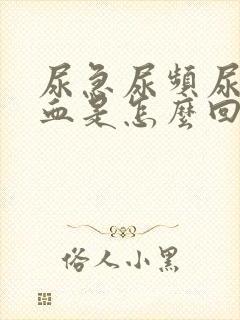 尿急尿頻尿
血是怎麼回
俗人小黑